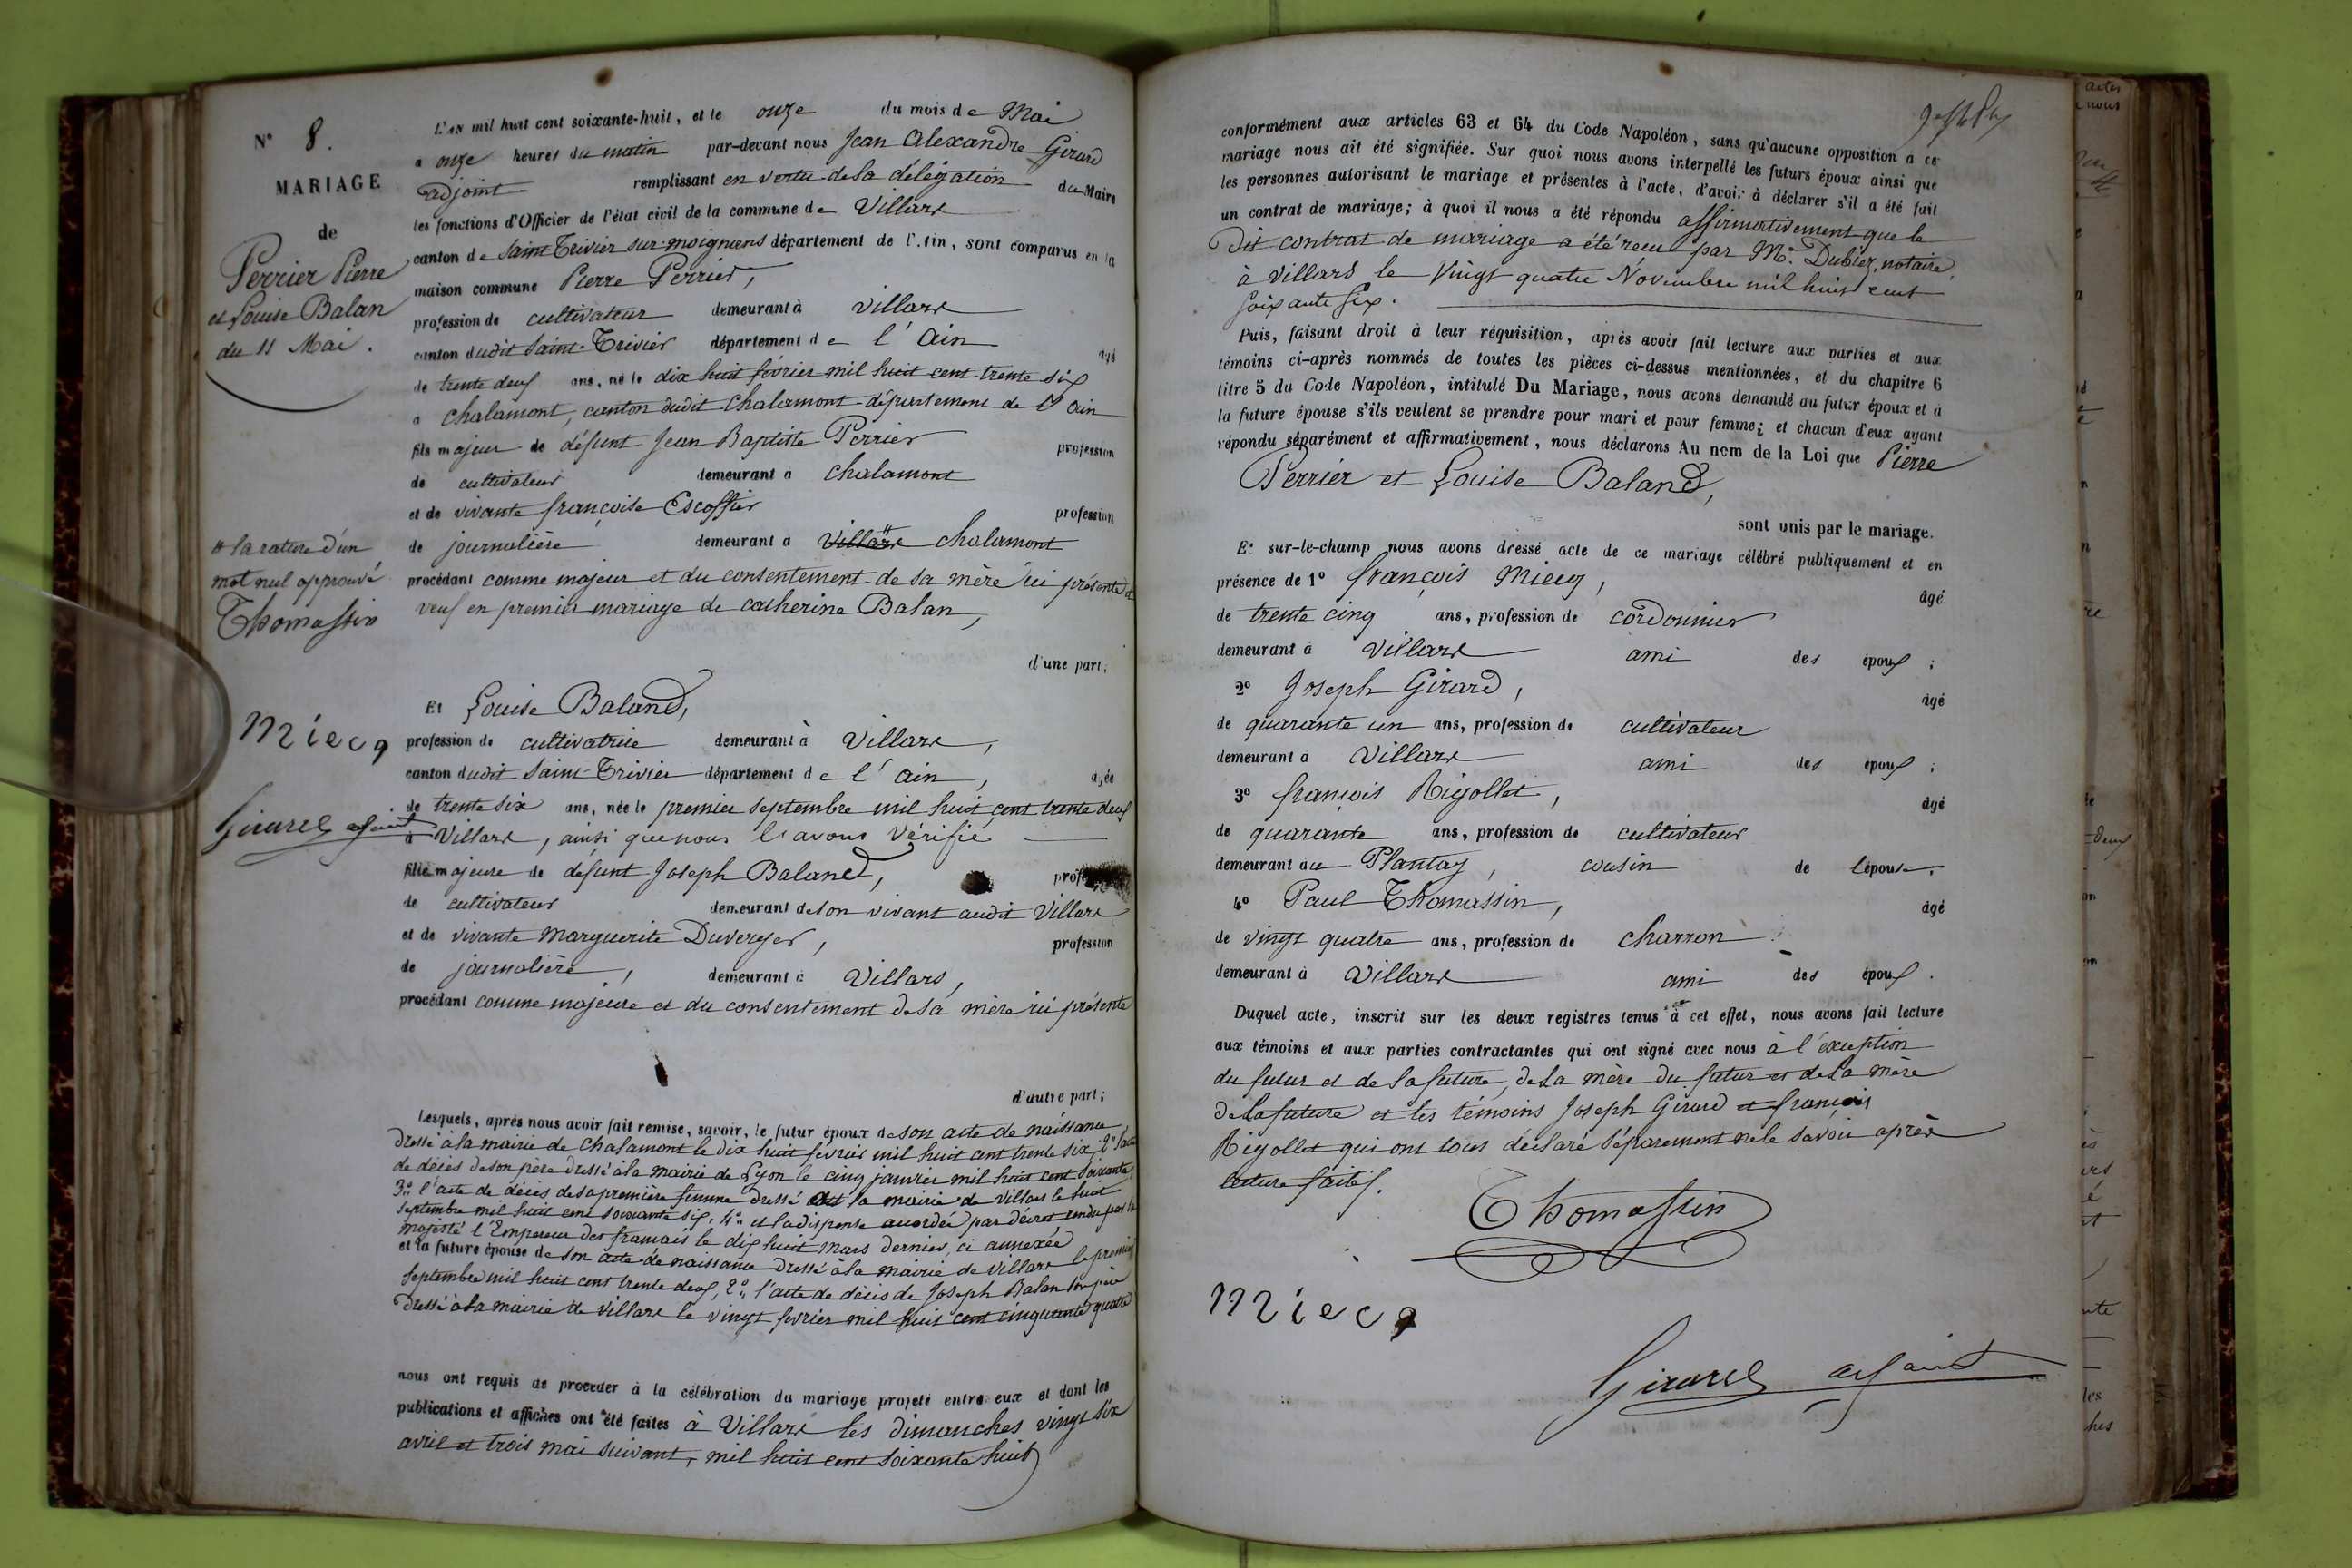 N° 8.
MARIAGE
de
Perrier Pierre
et Louise Balan
du 11 Mai.
# la rature d'un
mot nul approuvé
Thomassin
Miecq
Girard adjoint
L'AN mil huit cent soixante-huit, et le onze du mois de Mai
à onze heures du matin par-devant nous Jean Alexandre Girard
adjoint remplissant en vertu de la délégation du Maire
les fonctions d'Officier de l'état civil de la commune de Villars
canton de Saint Trivier sur moignens département de l'Ain, sont comparus en la
maison commune Pierre Perrier,
profession de cultivateur demeurant à Villars
canton dudit Saint-Trivier département de l'Ain âgé
de trente deux ans, né le dix huit février mil huit cent trente six
à Chalamont, canton dudit Chalamont département de l'Ain
fils majeur de défunt Jean Baptiste Perrier profession
de cultivateur demeurant à Chalamont
et de vivante françoise Escoffier profession
de journalière demeurant à Villars # Chalamont
procédant comme majeur et du consentement de sa mère ici présente et
veuf en premier mariage de catherine Balan,
d'une part;
Et Louise Baland,
profession de cultivatrice demeurant à Villars,
canton dudit Saint-Trivier département de l'Ain, âgée
de trente six ans, née le premier septembre mil huit cent trente deux
à Villars, ainsi que nous l'avons vérifié
fille majeure de défunt Joseph Baland,
de cultivateur demeurant de son vivant audit Villars
et de vivante Marguerite Duverger, profession
de journalière, demeurant à Villars,
procédant comme majeure et du consentement de sa mère ici présente
d'autre part;
Lesquels, après nous avoir fait remise, savoir, le futur époux de son acte de naissance
dressé à la mairie de Chalamont le dix huit fevrier mil huit cent trente six, 2° l'acte
de décès de son père dressé à la mairie de Lyon le cinq janvier mil huit cent soixante,
3° l'acte de décès de sa première femme dressé à la mairie de Villars le huit
septembre mil huit cent soixante six, 4° et la dispense accordée par décret rendu par sa
majesté l'Empereur des français le dix huit mars dernier, ci annexée
et la future épouse de son acte de naissance dressé à la mairie de Villars le premier
septembre mil huit cent trente deux, 2° l'acte de décès de Joseph Balan son père
dressé à la mairie de Villars le vingt fevrier mil huit cent cinquante quatre
nous ont requis de procéder à la célébration du mariage projeté entre eux et dont les
publications et affiches ont été faites à Villars les dimanches vingt six
avril et trois mai suivant, mil huit cent soixante huit
conformément aux articles 63 et 64 du Code Napoléon, sans qu'aucune opposition à ce
mariage nous ait été signifiée. Sur quoi nous avons interpellé les futurs époux ainsi que
les personnes autorisant le mariage et présentes à l'acte, d'avoir à déclarer s'il a été fait
un contrat de mariage; à quoi il nous a été répondu affirmativement que le
dit contrat de mariage a été recu par Me. Dubiez, notaire,
à Villars le Vingt quatre Novembre mil huit cent
soixante six.
Puis, faisant droit à leur réquisition, après avoir fait lecture aux parties et aux
témoins ci-après nommés de toutes les pièces ci-dessus mentionnées, et du chapitre 6
titre 5 du Code Napoléon, intitulé Du Mariage, nous avons demandé au futur époux et à
la future épouse s'ils veulent se prendre pour mari et pour femme; et chacun d'eux ayant
répondu séparément et affirmativement, nous déclarons Au nom de la Loi que Pierre
Perrier et Louise Baland,
sont unis par le mariage.
Et sur-le-champ nous avons dressé acte de ce mariage célébré publiquement et en
présence de 1° françois Miecq, âgé
de trente cinq ans, profession de cordonnier
demeurant à Villars ami des époux;
2° Joseph Girard, âgé
de quarante un ans, profession de cultivateur
demeurant à Villars ami des époux;
3° françois Rigollet, âgé
de quarante ans, profession de cultivateur
demeurant au Plantay, cousin de l'épouse;
4° Paul Thomassin, âgé
de vingt quatre ans, profession de charron
demeurant à Villars ami des époux.
Duquel acte, inscrit sur les deux registres tenus à cet effet, nous avons fait lecture
aux témoins et aux parties contractantes qui ont signé avec nous à l'exception
du futur et de la future, de la mère du futur et de la mère
de la future et les témoins Joseph Girard et françois
Rigollet qui ont tous déclaré séparement ne le savoir après
lecture faite.
Thomassin
Miecq
Girard adjoint